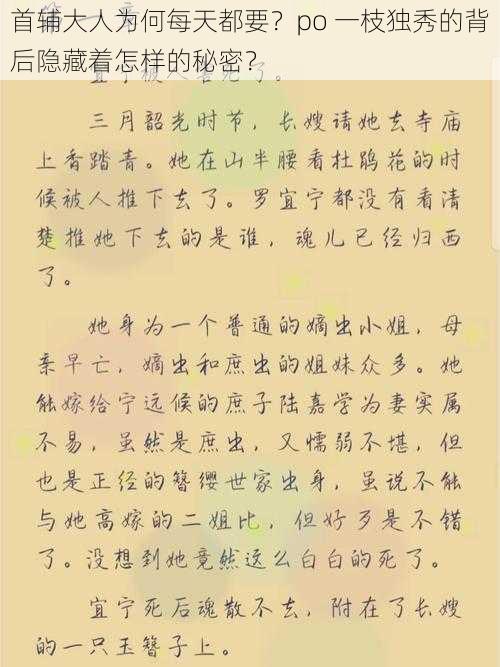 首辅大人为何每天都要？po 一枝独秀的背
后隐藏着怎样的秘密？
宜宁被人害死了。
三月韶光时节，长嫂请她去寺庙
上香踏青。她在山半腰看杜鹃花的时
候被人推下去了。罗宜宁都没有看清
楚推她下去的是谁，魂儿已经归西
了。
她身为一个普通的嫡出小姐，母
亲早亡，嫡出和庶出的姐妹众多。她
能嫁给宁远候的庶子陆嘉学为妻实属
不易，虽然是庶出，又懦弱不堪，但
也是正经的簪缨世家出身，虽说不能
与她高嫁的二姐比，但好歹是不错
了。没想到她竟然这么白白的死了。
宜宁死后魂散不去，附在了长嫂
的一只玉簪子上。